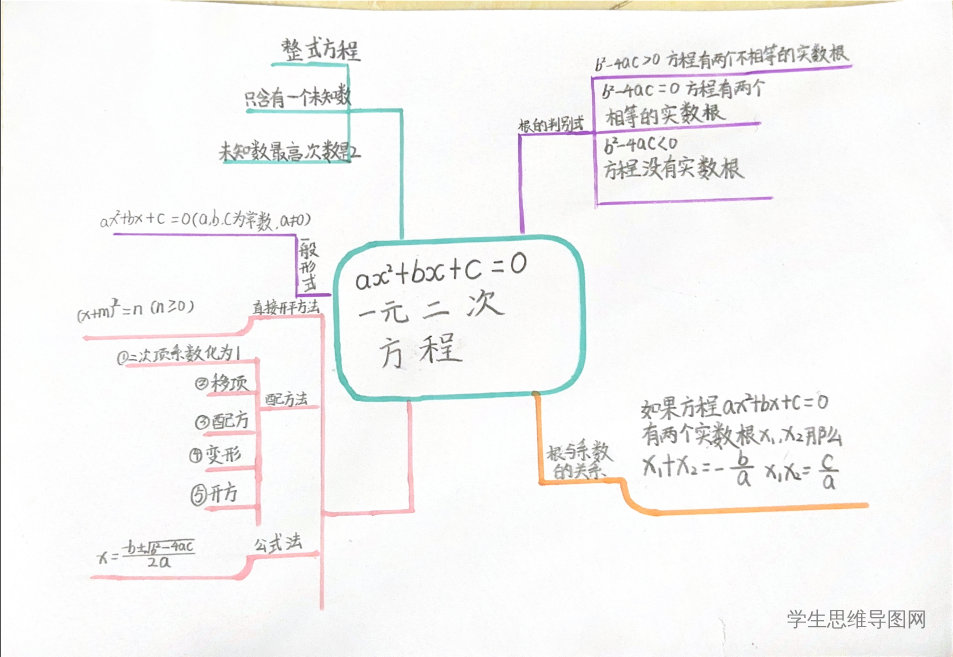 整式方程
只含有一个未知数
未知数最高次数是2
b²-4ac>0 方程有两个不相等的实数根
b²-4ac=0 方程有两个
相等的实数根
根的判别式
b²-4ac<0
方程没有实数根
ax²+bx+c=0(a,b,c为常数,a≠0)
一般形式
ax²+bx+c=0
一元二次
方程
(x+m)²=n (n≥0)
直接开平方法
①二次项系数化为1
②移项
配方法
③配方
④变形
⑤开方
公式法
x=b±√b²-4ac/2a
根与系数
的关系
如果方程ax²+bx+c=0
有两个实数根x₁,x₂那么
x₁+x₂=-b/a x₁x₂=c/a
学生思维导图网